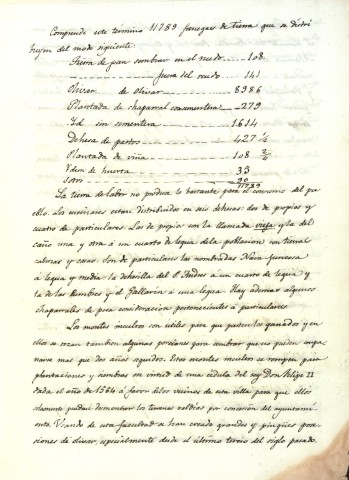 Comprende este termino 11789 fanegas de tierra que se distri
buyen del modo siguiente.
Tierra de pan sembrar en el ruedo 108
fuera del ruedo 141
Olivar de olivar 8986
Plantada de chaparral con sementera 279
Yd sin sementera 1614
Dehesa de pastos 427 ½
Plantada de viña 108
Ydem de huerta 33
sotos 90
11789
La tierra de labor no produce lo bastante para el consumo del pue
blo. Los encinares estan distribuidos en seis dehesas: dos de propios y
cuatro de particulares. Las de propios son la llamada vieja y la del
caño una y otra á un cuarto de legua de la poblacion con tierras
calmas y casas. Son de particulares las nombradas Nava
á legua y media: la dehesilla del P. Andres á un cuarto de legua y
la de las Cumbres y el Gallarin á una legua. Hay ademas algunos
chaparrales de poca consideracion pertenecientes á particulares.
Los montes incultos son utiles para que pasten los ganados y en
ellos se rozan tambien algunas porciones para sembrar que no pueden
mas que dos años seguidos. Estos montes incultos se rompen para
plantaciones y siembras en virtud de una cedula del rey Don Felipe II
dada el año de 1584 á favor de los vecinos de esta villa para que ellos
solamente puedan desmontar los terrenos valdios por concesion del ayuntami
ento. Usando de esta facultad se han creado grandes y pingües pose
siones de olivar, especialmente desde el ultimo tercio del siglo pasado.